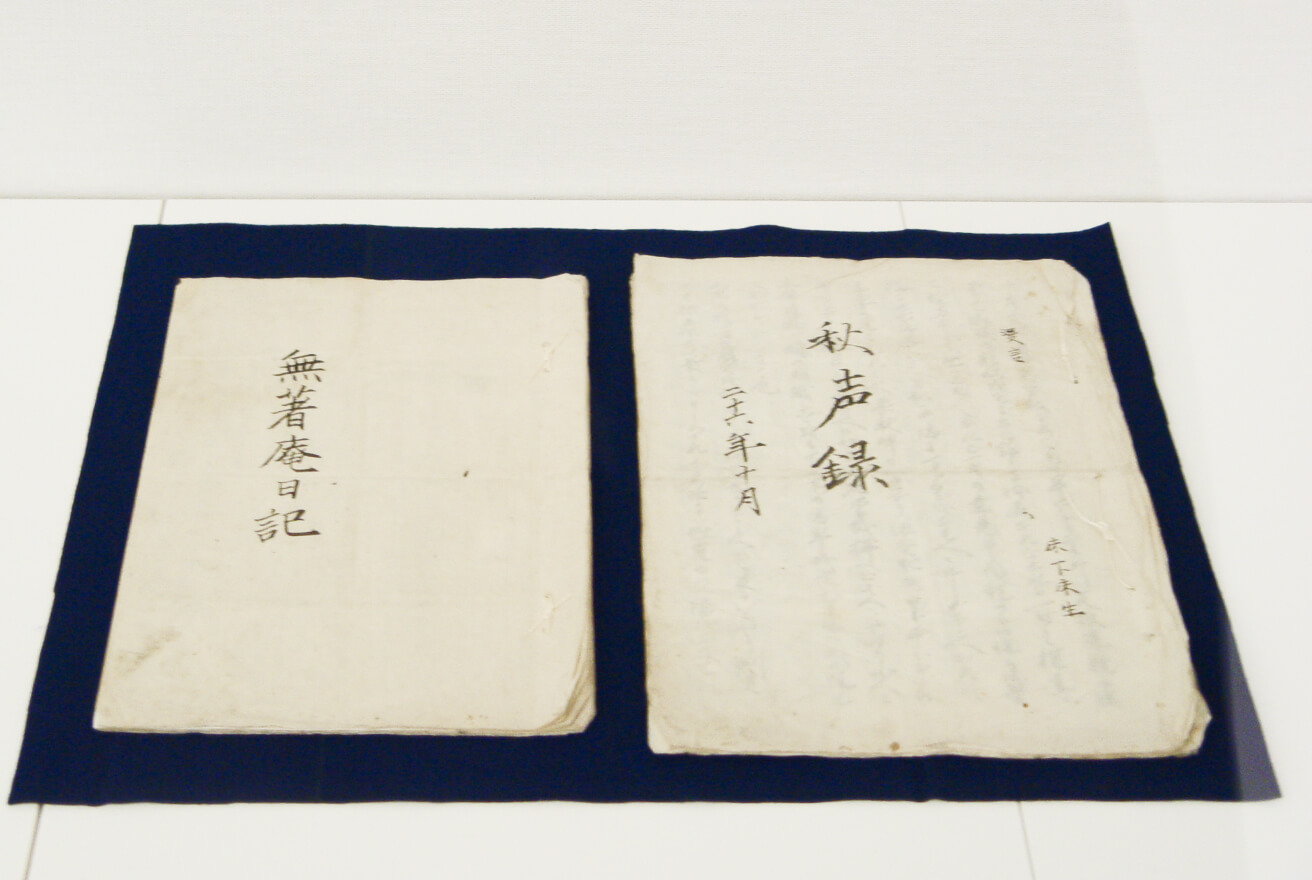 漫言
床下末生
秋声録
二十六年十月
無著庵日記